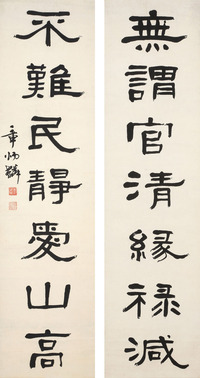 無謂官清緣祿減
不難民靜愛山高
章炳麟